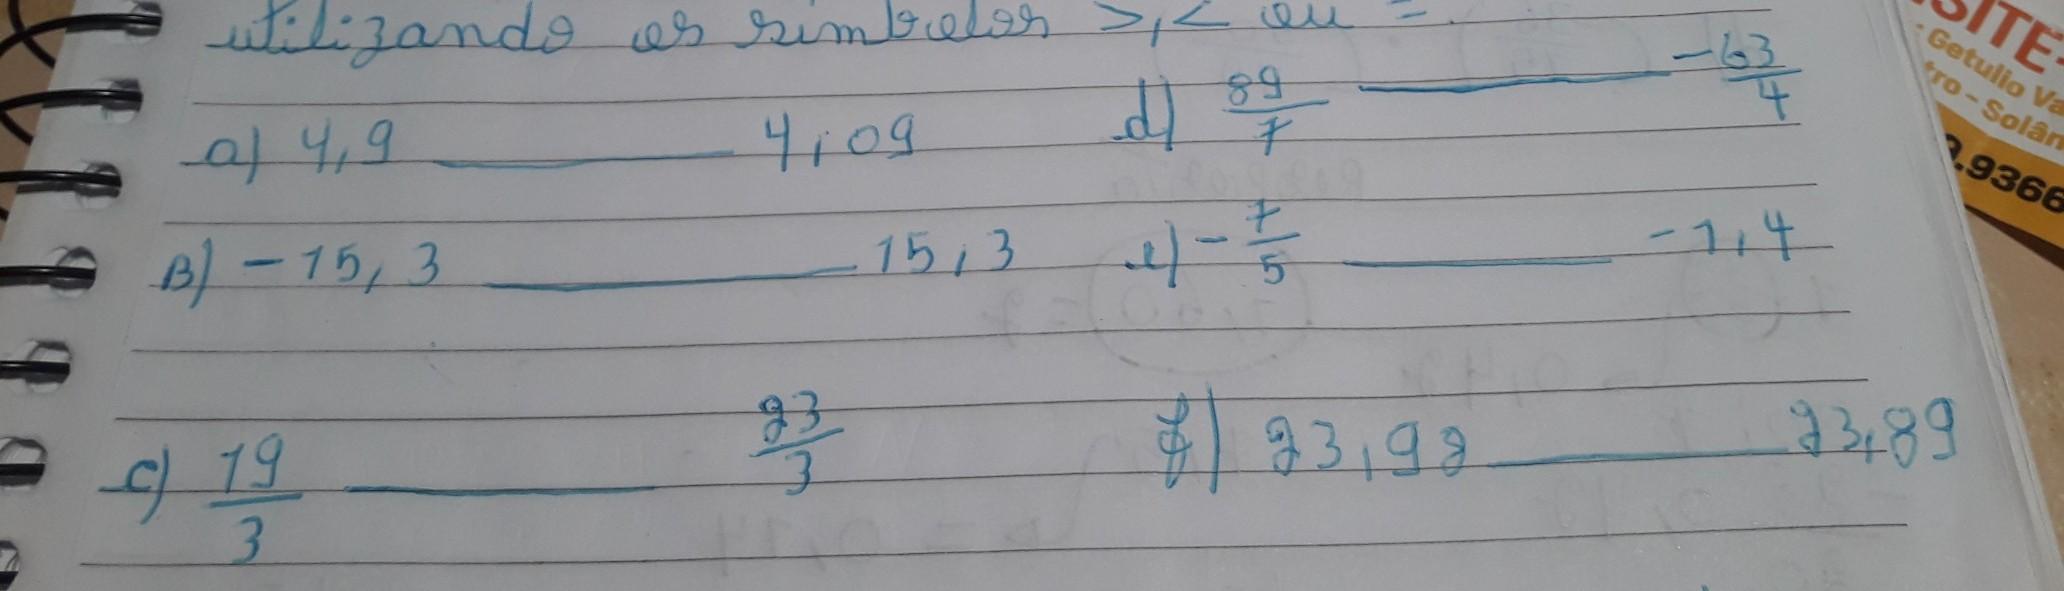 utilizando os símbolos >, < ou =.
a) 4,9 ______ 4,09
d) 89/7 ______ -63/4
B) -15,3 ______ 15,3
e) -7/5 ______ -1,4
c) 19/3 ______ 23/3
f) 23,92 ______ 23,89
SITE
Getulio Va
tro - Solân
.9366